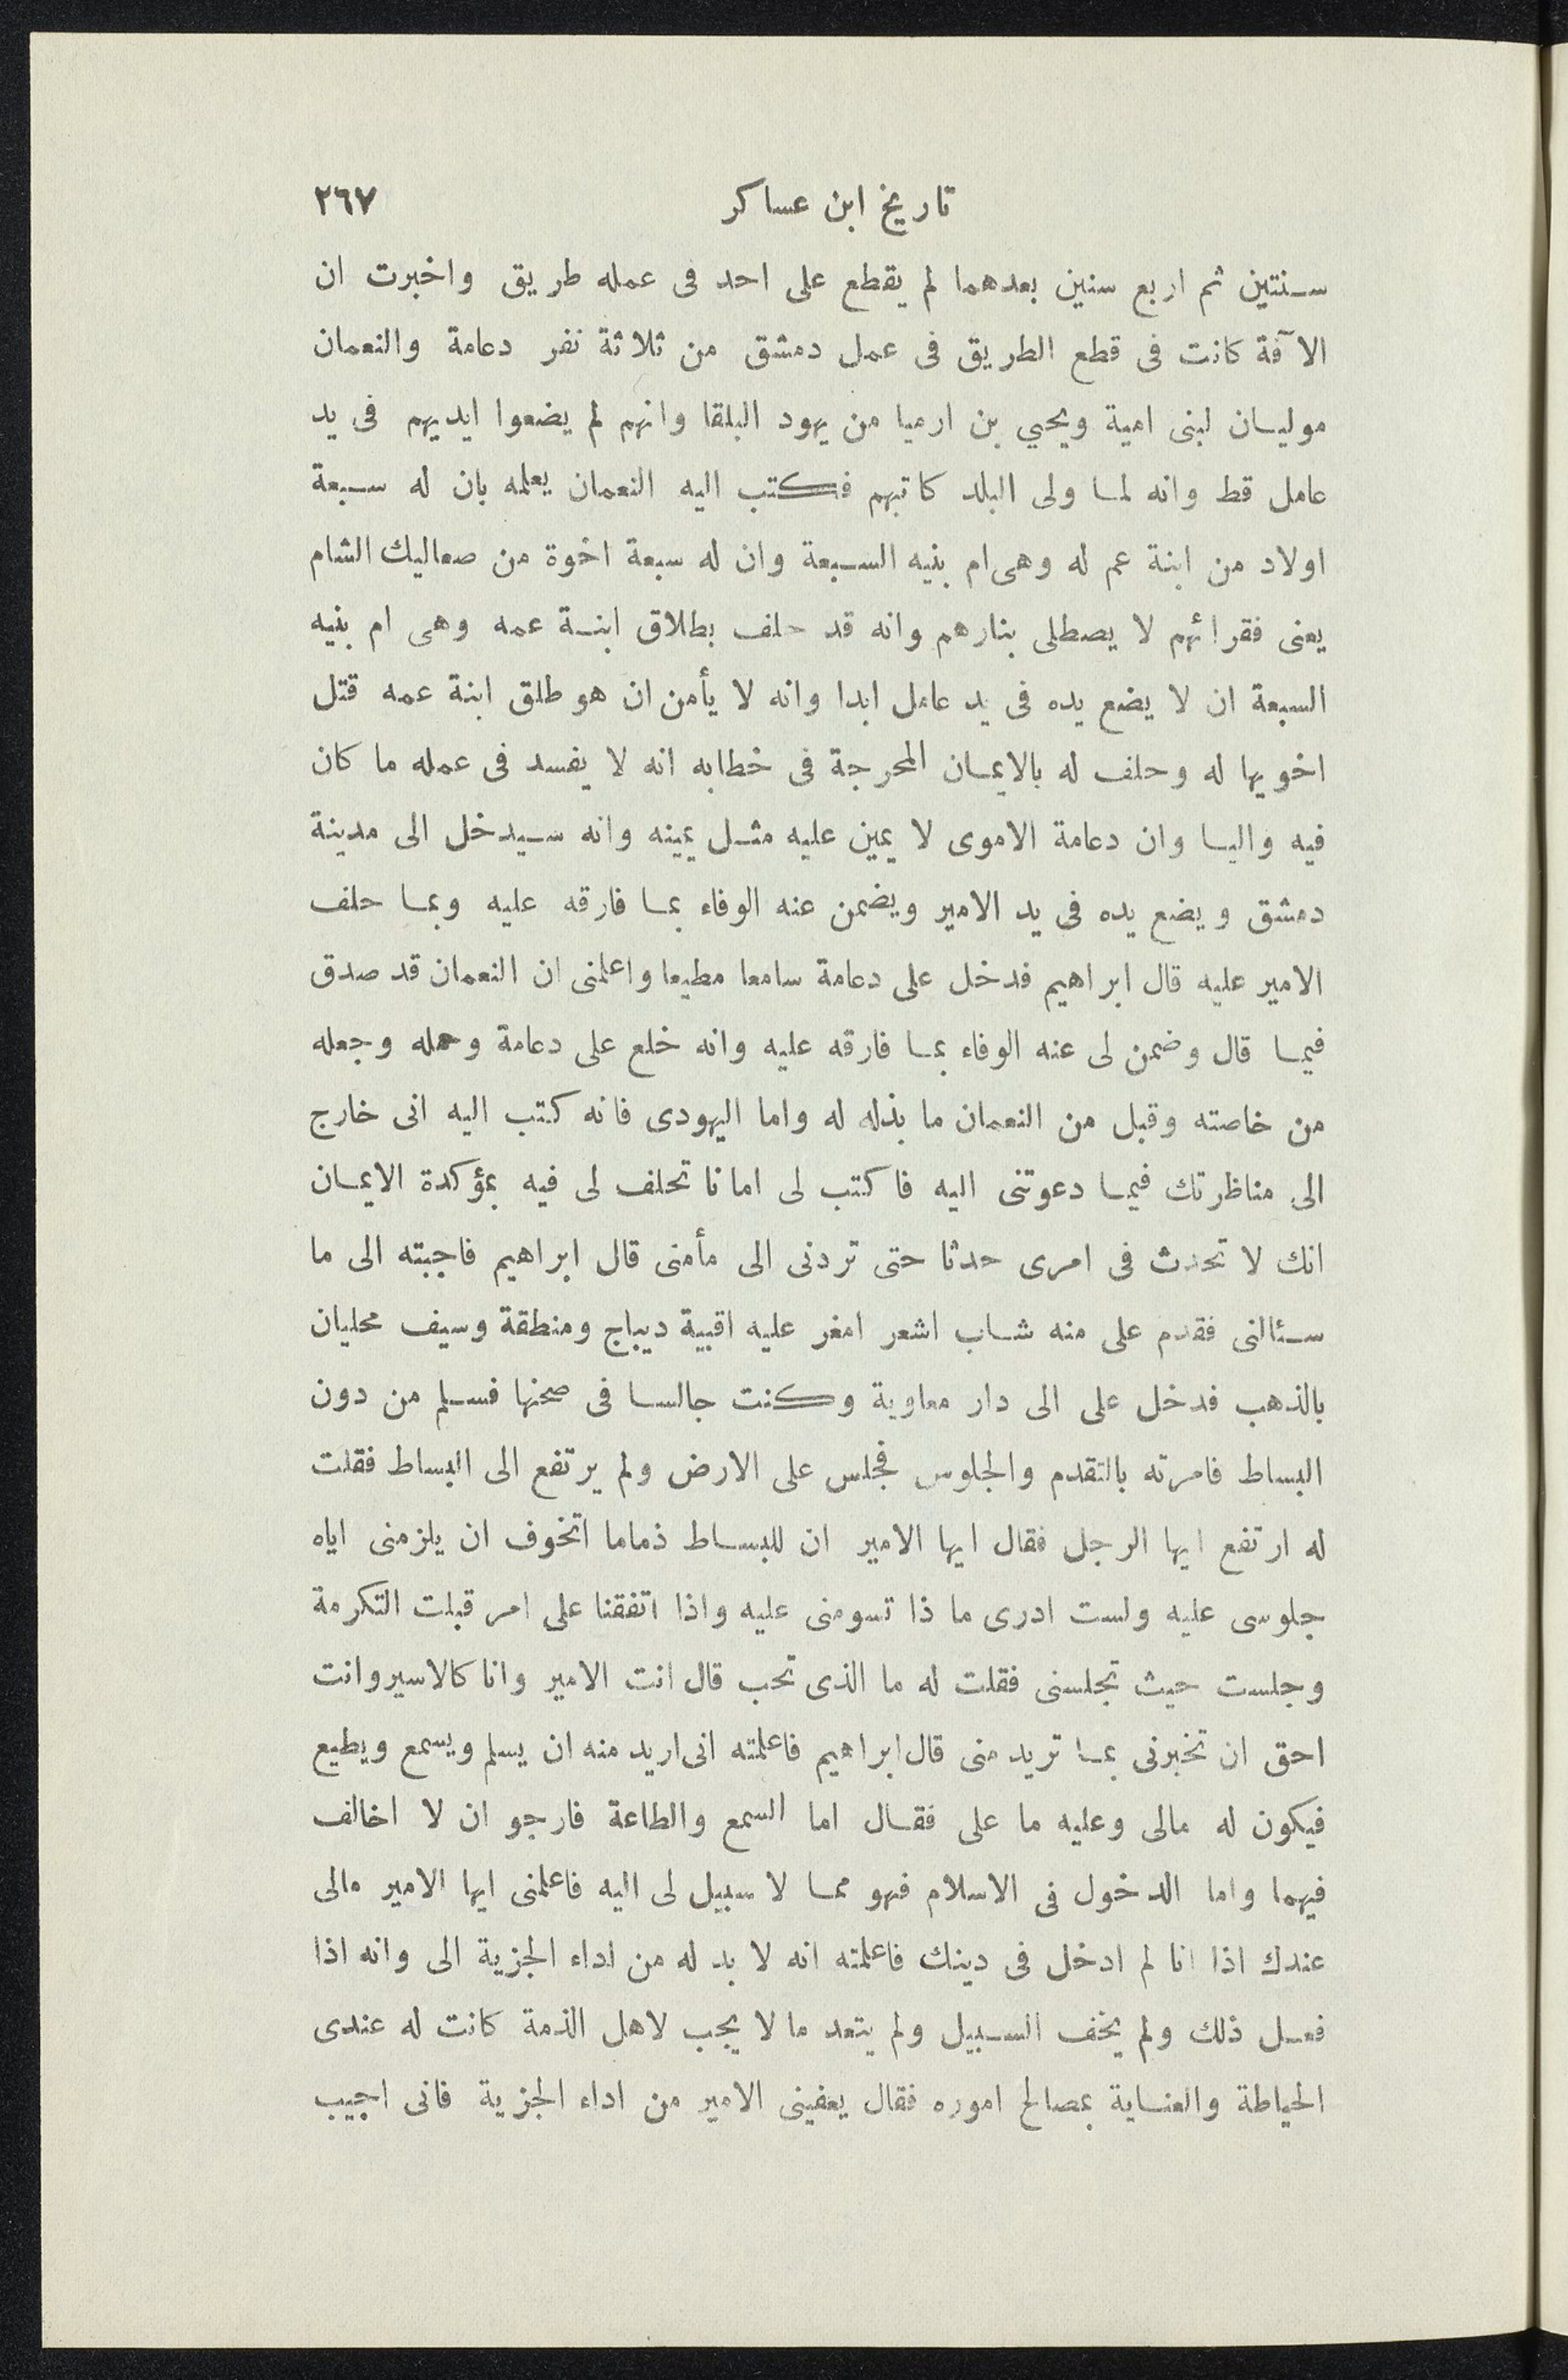 تاريخ ابن عساكر ٢٦٧
سنتين ثم اربع سنين بعدهما لم يقطع على احد فى عمله طريق واخبرت ان
الآفة كانت فى قطع الطريق فى عمل دمشق من ثلاثة نفر دعامة والنعمان
موليان لبنى امية ويحيي بن ارميا من يهود البلقا وانهم لم يضعوا ايديهم فى يد
عامل قط وانه لما ولى البلد كاتبهم فكتب اليه النعمان يعلمه بان له سبعة
اولاد من ابنة عم له وهى ام بنيه السبعة وان له سبعة اخوة من صعاليك الشام
يعنى فقرائهم لا يصطلى بنارهم وانه قد حلف بطلاق ابنة عمه وهى ام بنيه
السبعة ان لا يضع يده فى يد عامل ابدا وانه لا يأمن ان هو طلق ابنة عمه قتل
اخويها له وحلف له بالايمان المحرجة فى خطابه انه لا يفسد فى عمله ما كان
فيه واليا وان دعامة الاموى لا يمين عليه مثل يمينه وانه سيدخل الى مدينة
دمشق ويضع يده فى يد الامير ويضمن عنه الوفاء بما فارقه عليه وبما حلف
الامير عليه قال ابراهيم فدخل على دعامة سامعا مطيعا واعلمنى ان النعمان قد صدق
فيما قال وضمن لى عنه الوفاء بما فارقه عليه وانه خلع على دعامة وحمله وجعله
من خاصته وقبل من النعمان ما بذله له واما اليهودى فانه كتب اليه انى خارج
الى مناظرتك فيما دعوتنى اليه فاكتب لى امانا تحلف لى فيه بمؤكدة الايمان
انك لا تحدث فى امرى حدثا حتى تردنى الى مأمنى قال ابراهيم فاجبته الى ما
سئالنى فقدم على منه شاب اشعر امغر عليه اقبية ديباج ومنطقة وسيف محليان
بالذهب فدخل على الى دار معاوية وكنت جالسا فى صحنها فسلم من دون
البساط فامرته بالتقدم والجلوس فجلس على الارض ولم يرتفع الى البساط فقلت
له ارتفع ايها الرجل فقال ايها الامير ان للبساط ذماما اتخوف ان يلزمنى اياه
جلوسى عليه ولست ادرى ما ذا تسومنى عليه واذا اتفقنا على امر قبلت التكرمة
وجلست حيث تجلسنى فقلت له ما الذى تحب قال انت الامير وانا كالاسير وانت
احق ان تخبرنى بما تريد منى قال ابراهيم فاعلمته انى اريد منه ان يسلم ويسمع ويطيع
فيكون له مالى وعليه ما على فقال اما السمع والطاعة فارجو ان لا اخالف
فيهما واما الدخول فى الاسلام فهو مما لا سبيل لى اليه فاعلمنى ايها الامير مالى
عندك اذا انا لم ادخل فى دينك فاعلمته انه لا بد له من اداء الجزية الى وانه اذا
فعل ذلك ولم يخف السبيل ولم يتعد ما لا يجب لاهل الذمة كانت له عندى
الحياطة والعناية بمصالح اموره فقال يعفينى الامير من اداء الجزية فانى اجيب